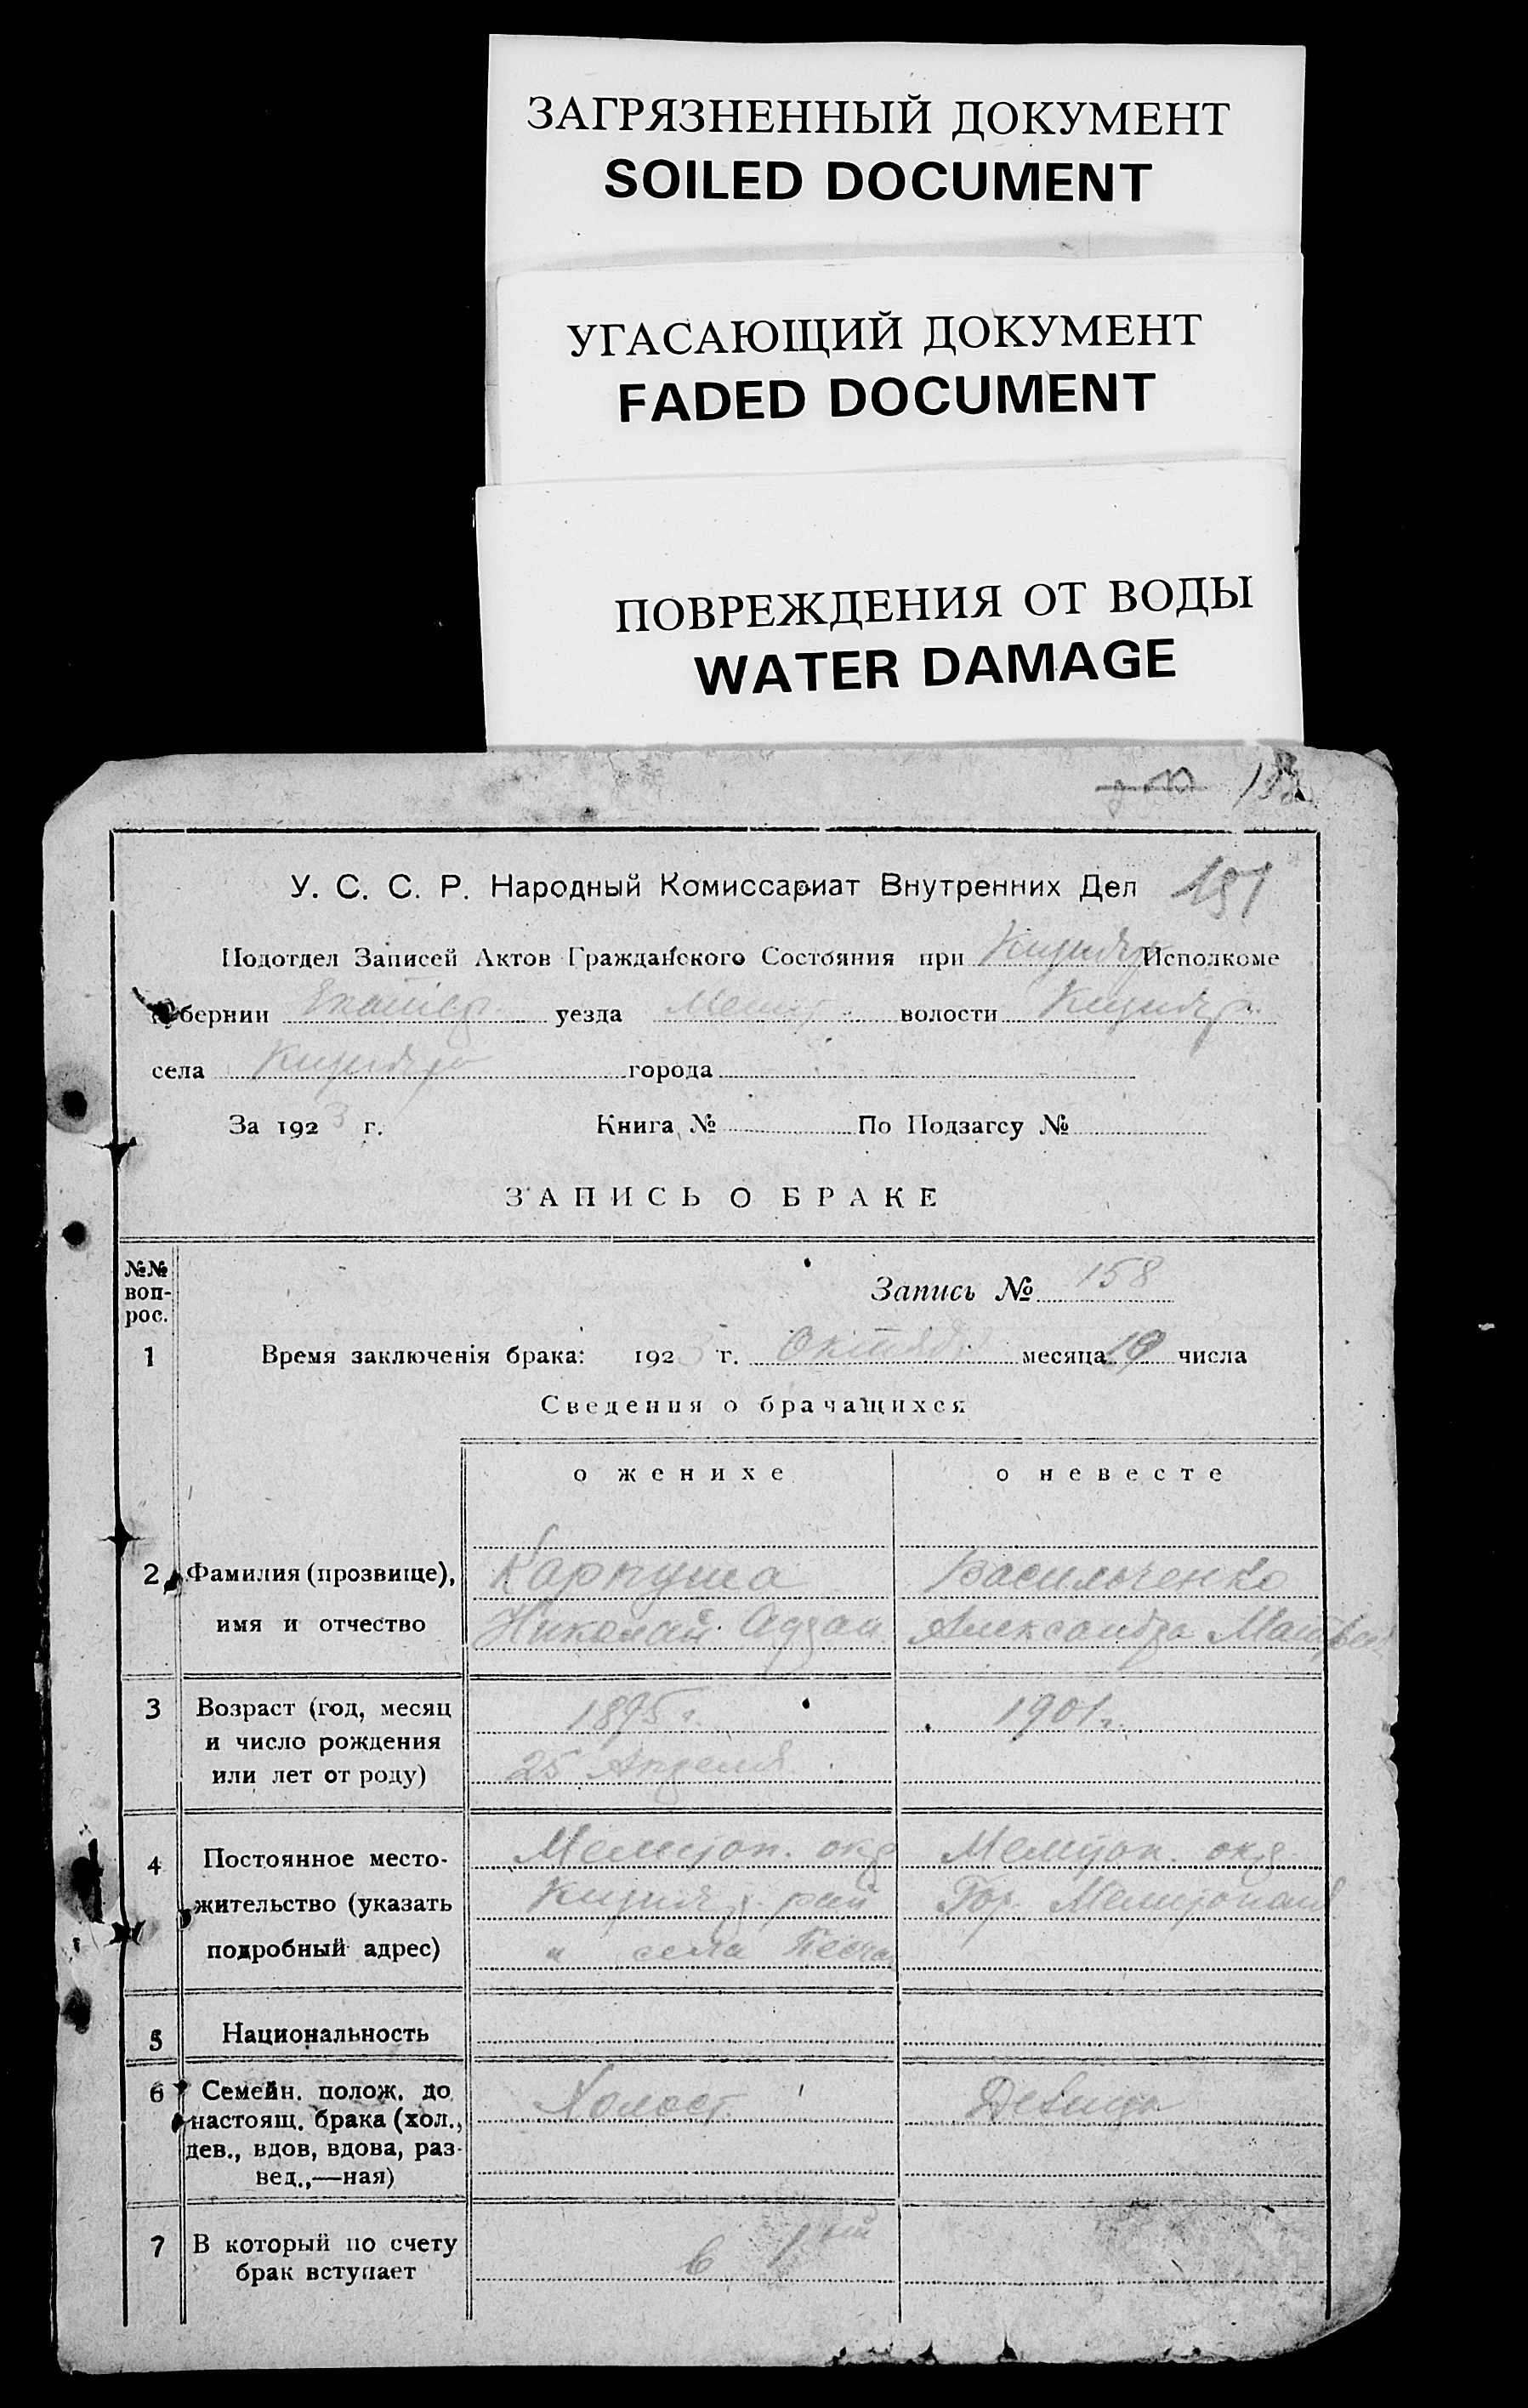 ЗАГРЯЗНЕННЫЙ ДОКУМЕНТ
SOILED DOCUMENT
УГАСАЮЩИЙ ДОКУМЕНТ
FADED DOCUMENT
ПОВРЕЖДЕНИЯ ОТ ВОДЫ
WATER DAMAGE
У. С. С. Р. Народный Комиссариат Внутренних Дел 151
Подотдел Записей Актов Гражданского Состояния при Исполкоме
бернии Екатер. уезда Мелит. волости
села города
За 1923 г. Книга № По Подзагсу №
ЗАПИСЬ О БРАКЕ
№№ воп-
рос.
Запись № 158
1 Время заключенія брака: 1923 г. Октября месяца 19 числа
Сведения о брачащихся
о женихе о невесте
2 Фамилия (прозвище), Карпуша Васильченко
имя и отчество Николай Александра Матвеев
3 Возраст (год, месяц 1895 г. 1901 г.
и число рождения
или лет от роду) 25 Апреля
4 Постоянное место- Мелитоп. окр Мелитоп. окр.
жительство (указать рай Гор. Мелитополь
подробный адрес) " села
5 Национальность
6 Семейн. полож. до Холост Девица
настоящ. брака (хол.,
дев., вдов, вдова, раз-
вед.,—ная)
7 В который по счету в 1ый
брак вступает